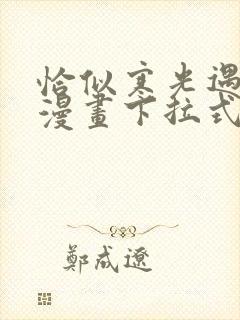 恰似寒光遇
漫畫下拉式
鄭咸遼